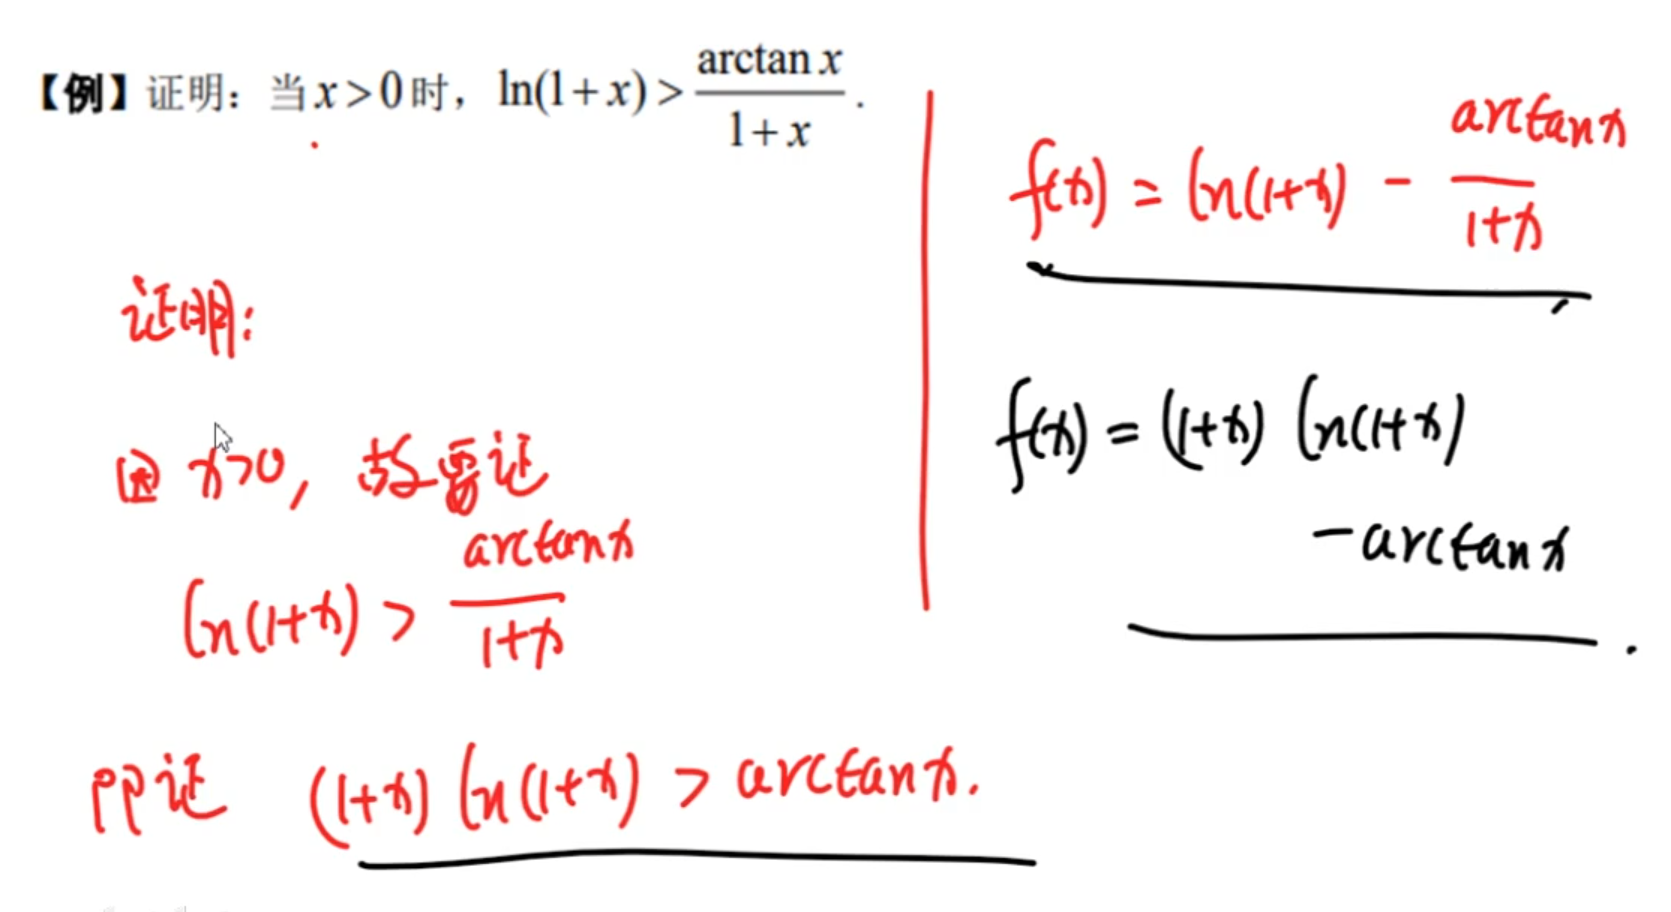 【例】证明：当 x > 0 时，ln(1+x) > arctan x / (1+x) .
证明:
因 x>0, 故要证
ln(1+x) > arctanx / (1+x)
即证 (1+x) ln(1+x) > arctanx.
f(x) = ln(1+x) - arctanx / (1+x)
f(x) = (1+x) ln(1+x)
-arctanx